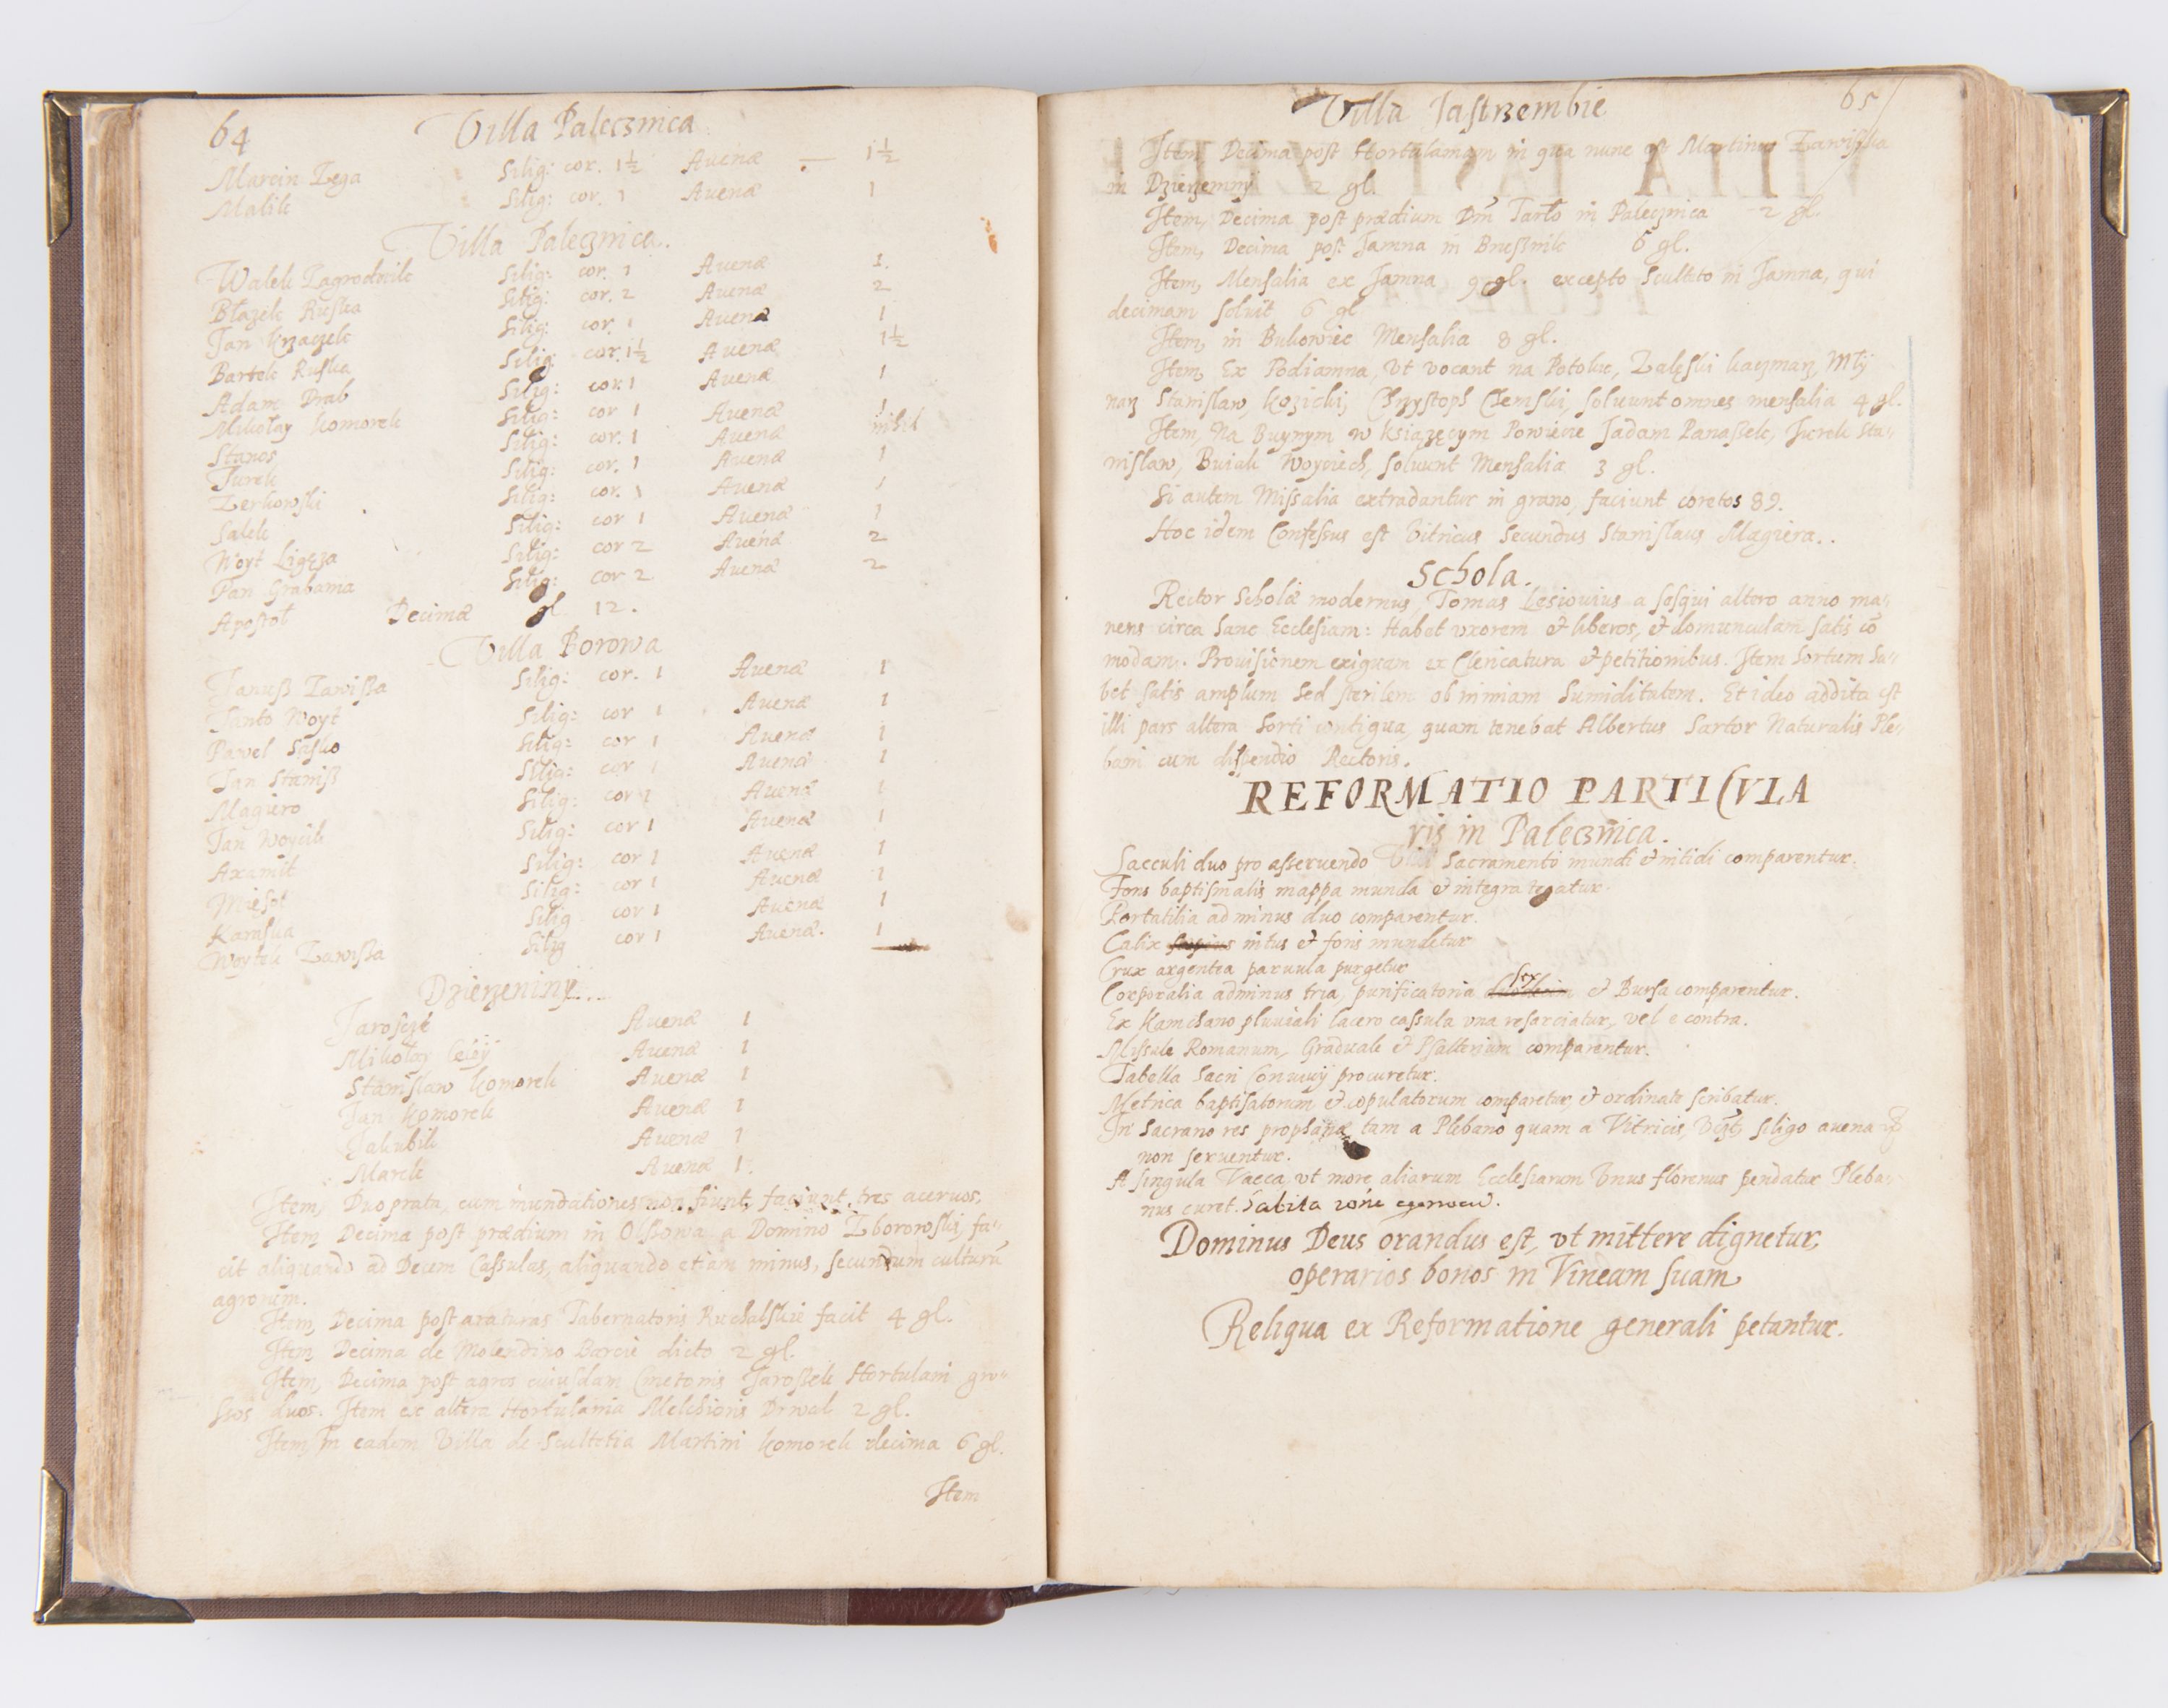 64 Villa Palecznica
Marcin Zega Silig: cor. 1½ Auenæ — 1½
Malik Silig: cor. 1 Auenæ 1
Villa Palecznica.
Walek Zagrodnik Silig: cor. 1 Auenæ 1.
Błazek Ruska Silig: cor. 2 Auenæ 2
Jan Krzaczek Silig: cor. 1 Auenæ 1
Bartek Ruska Silig: cor. 1½ Auenæ 1½
Adam Drab Silig: cor. 1 Auenæ 1
Mikołay Komorek Silig: cor 1 Auenæ 1
Stanos Silig: cor. 1 Auenæ nihil
Jurek Silig: cor. 1 Auenæ 1
Zerkowski Silig: cor. 1 Auenæ 1
Salek Silig: cor 1 Auenæ 1
Woyt Ligęza Silig: cor 2 Auenæ 2
Pan Grabania Silig: cor 2 Auenæ 2
Apostoł Decimæ gl 12.
Villa Borowa
Janusz Zawisza Silig: cor. 1 Auenæ 1
Janto Woyt Silig: cor 1 Auenæ 1
Paweł Sasko Silig: cor 1 Auenæ 1
Jan Stanisz Silig: cor 1 Auenæ 1
Magiero Silig: cor 1 Auenæ 1
Jan Woycik Silig: cor 1 Auenæ 1
Axamit Silig: cor 1 Auenæ 1
Mięsoł Silig: cor 1 Auenæ 1
Karasua Silig cor 1 Auenæ 1
Woytek Zawisza Silig cor 1 Auenæ. 1
Dzierzeniny...
Jaroszé Auenæ 1
Mikołay Auenæ 1
Stanisław Komorek Auenæ 1
Jan Komorek Auenæ 1
Jakubik Auenæ 1
Marek Auenæ 1.
Item, Duo prata, cum inundationes non fiunt, faciunt tres aceruos.
Item Decima post prædium in Olszowa a Domino Zborowski, fa-
cit aliquando ad Decem Cassulas, aliquando etiam minus, secundum culturũ
agrorum.
Item, Decima post araturas Tabernatoris Ruchalskie facit 4 gl.
Item Decima de Molendino Barcie dicto 2 gl.
Item, Decima post agros cuiusdam Cmetonis Jaroszek Hortulani gro-
ssos duos. Item ex altera Hortulania Melchioris Drwal 2 gl.
Item, In eadem Villa de Scultetia Martini Komorek decima 6 gl.
Item
Villa Jastrzembie 65
Item, Decima post Hortulaniam in qua nunc est Martinus Zawiszka
in Dzierzemny 2 gl.
Item, Decima post prædium Dm̃ Tarło in Paleczmica 2 gl.
Item, Decima post Jamna in Brusznik 6 gl.
Item, Mensalia ex Jamna 9 gl. excepto Sculteto in Jamna, qui
decimam soluit 6 gl
Item, in Bukowiec Mensalia 8 gl.
Item, Ex Podiamna, vt vocant na Potoku, Zalęski karzmarz, Mły
narz Stanisław, Kozicki, Chrzystoph Chemski, soluunt omnes mensalia 4 gl.
Item, Na Buynym w książęcym Powiecie Jadam Panaszek, Jurek Sta-
nisław, Buiak Woyciech, soluunt Mensalia 3 gl.
Si autem Missalia extradantur in grano, faciunt coretos 89.
Hoc idem Confessus est Vitricus Secundus Stanislaus Magiera..
Schola.
Rector Scholæ modernus Tomas Lesiouius a sesqui altero anno ma-
nens circa hanc Ecclesiam: Habet vxorem et liberos, et domunculam satis cõ
modam. Prouisionem exiguam ex Clericatura et petitionibus. Item hortum ha-
bet satis amplum sed sterilem ob nimiam humiditatem. Et ideo addita est
illi pars altera horti contigua, quam tenebat Albertus Sartor Naturalis Ple-
bani cum dispendio Rectoris.
REFORMATIO PARTICVLA
ris in Paleczmica.
Sacculi duo pro asseruendo Ven Sacramento mundi et nitidi comparentur.
Fons baptismalis mappa munda et integra tegatur.
Portatilia ad minus duo comparentur.
Calix sæpius intus et foris mundetur
Crux argentea paruula purgetur
Corporalia adminus tria, purificatoria duodecim sex et Bursa comparentur.
Ex Kamchano pluuiali lacero cassula vna resarciatur, vel e contra.
Missale Romanum, Graduale et Psalterium comparentur.
Tabella Sacri Conuiuij procuretur.
Metrica baptisatorum et copulatorum comparetur, et ordinate scribatur.
In Sacrario res prophanæ tam a Plebano quam a Vitricis, siligo auena
non seruentur.
A singula Vacca, vt more aliarum Ecclesiarum Vnus florenus pendatur Pleba-
nus curet. habita
Dominus Deus orandus est, vt mittere dignetur,
operarios bonos in Vineam suam
Reliqua ex Reformatione generali petantur.